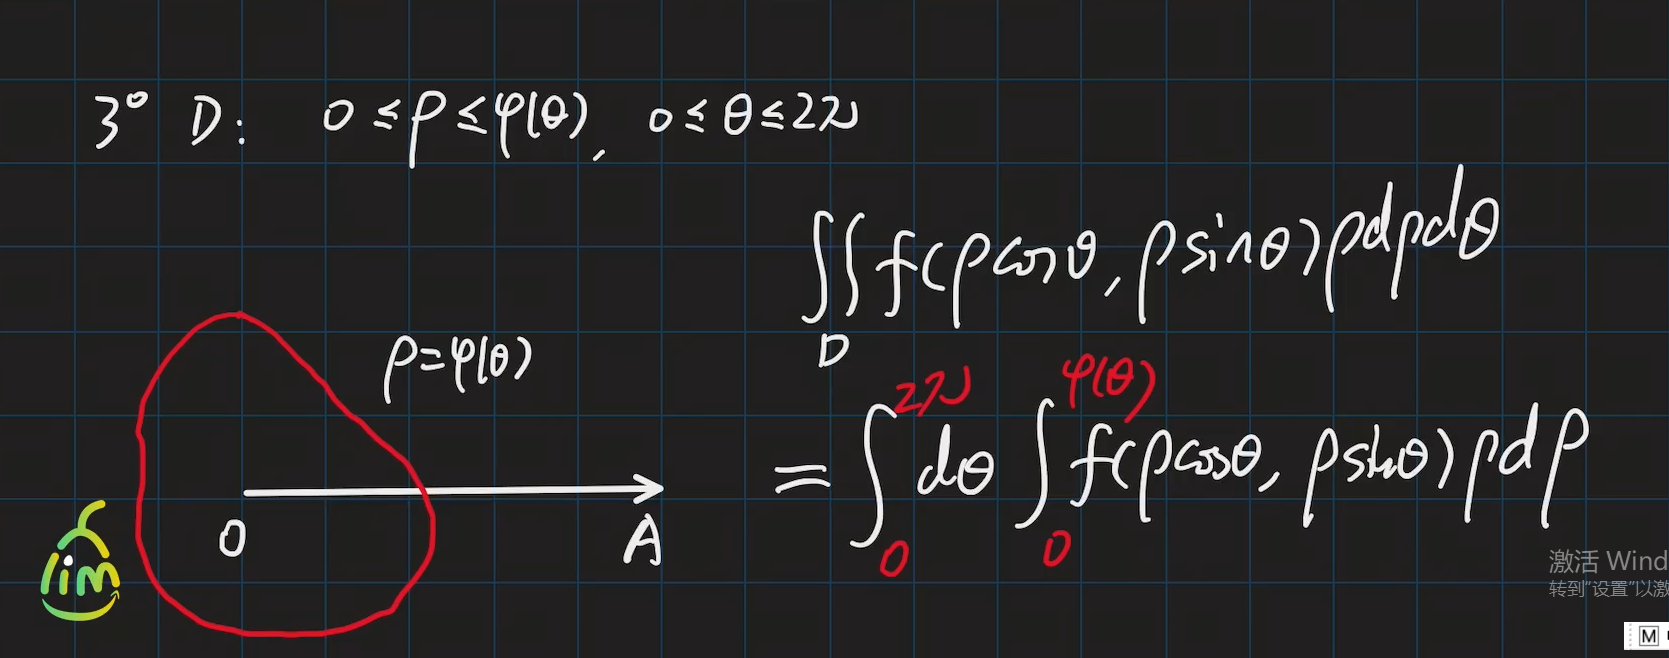 3° D: 0 ≤ ρ ≤ φ(θ), 0 ≤ θ ≤ 2π
∬_D f(ρcosθ, ρsinθ)ρdρdθ
ρ=φ(θ)
= ∫_0^{2π} dθ ∫_0^{φ(θ)} f(ρcosθ, ρsinθ)ρdρ
O A
lim
激活 Wind
转到"设置"以激
M